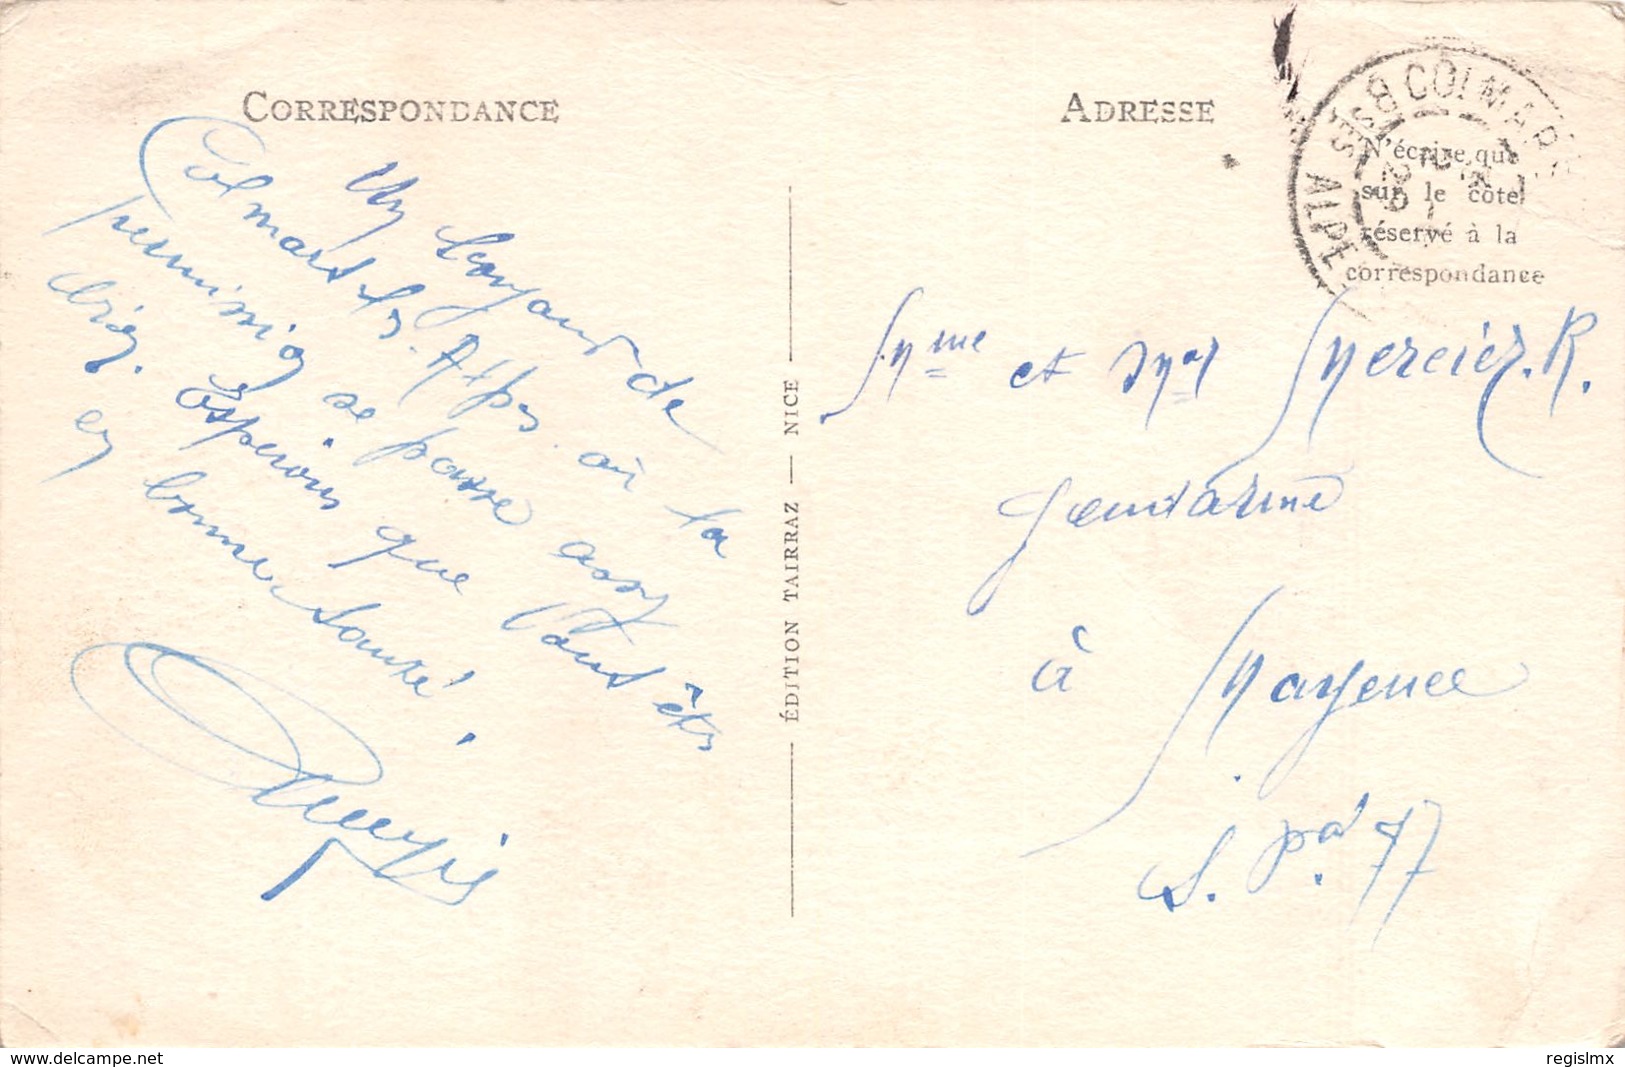 CORRESPONDANCE
Un bonjour de
Colmars les Alpes où la
permission se passe assez
bien. Espérons que vous êtes
en bonne santé.
ÉDITION TAIRRAZ — NICE
ADRESSE
COLMARS
BSSES ALPES
N'écrire que
sur le côté
réservé à la
correspondance
Mme et Mr Mercier. R.
Gendarme
à Mayence
S. pal 77
www.delcampe.net
regislmx